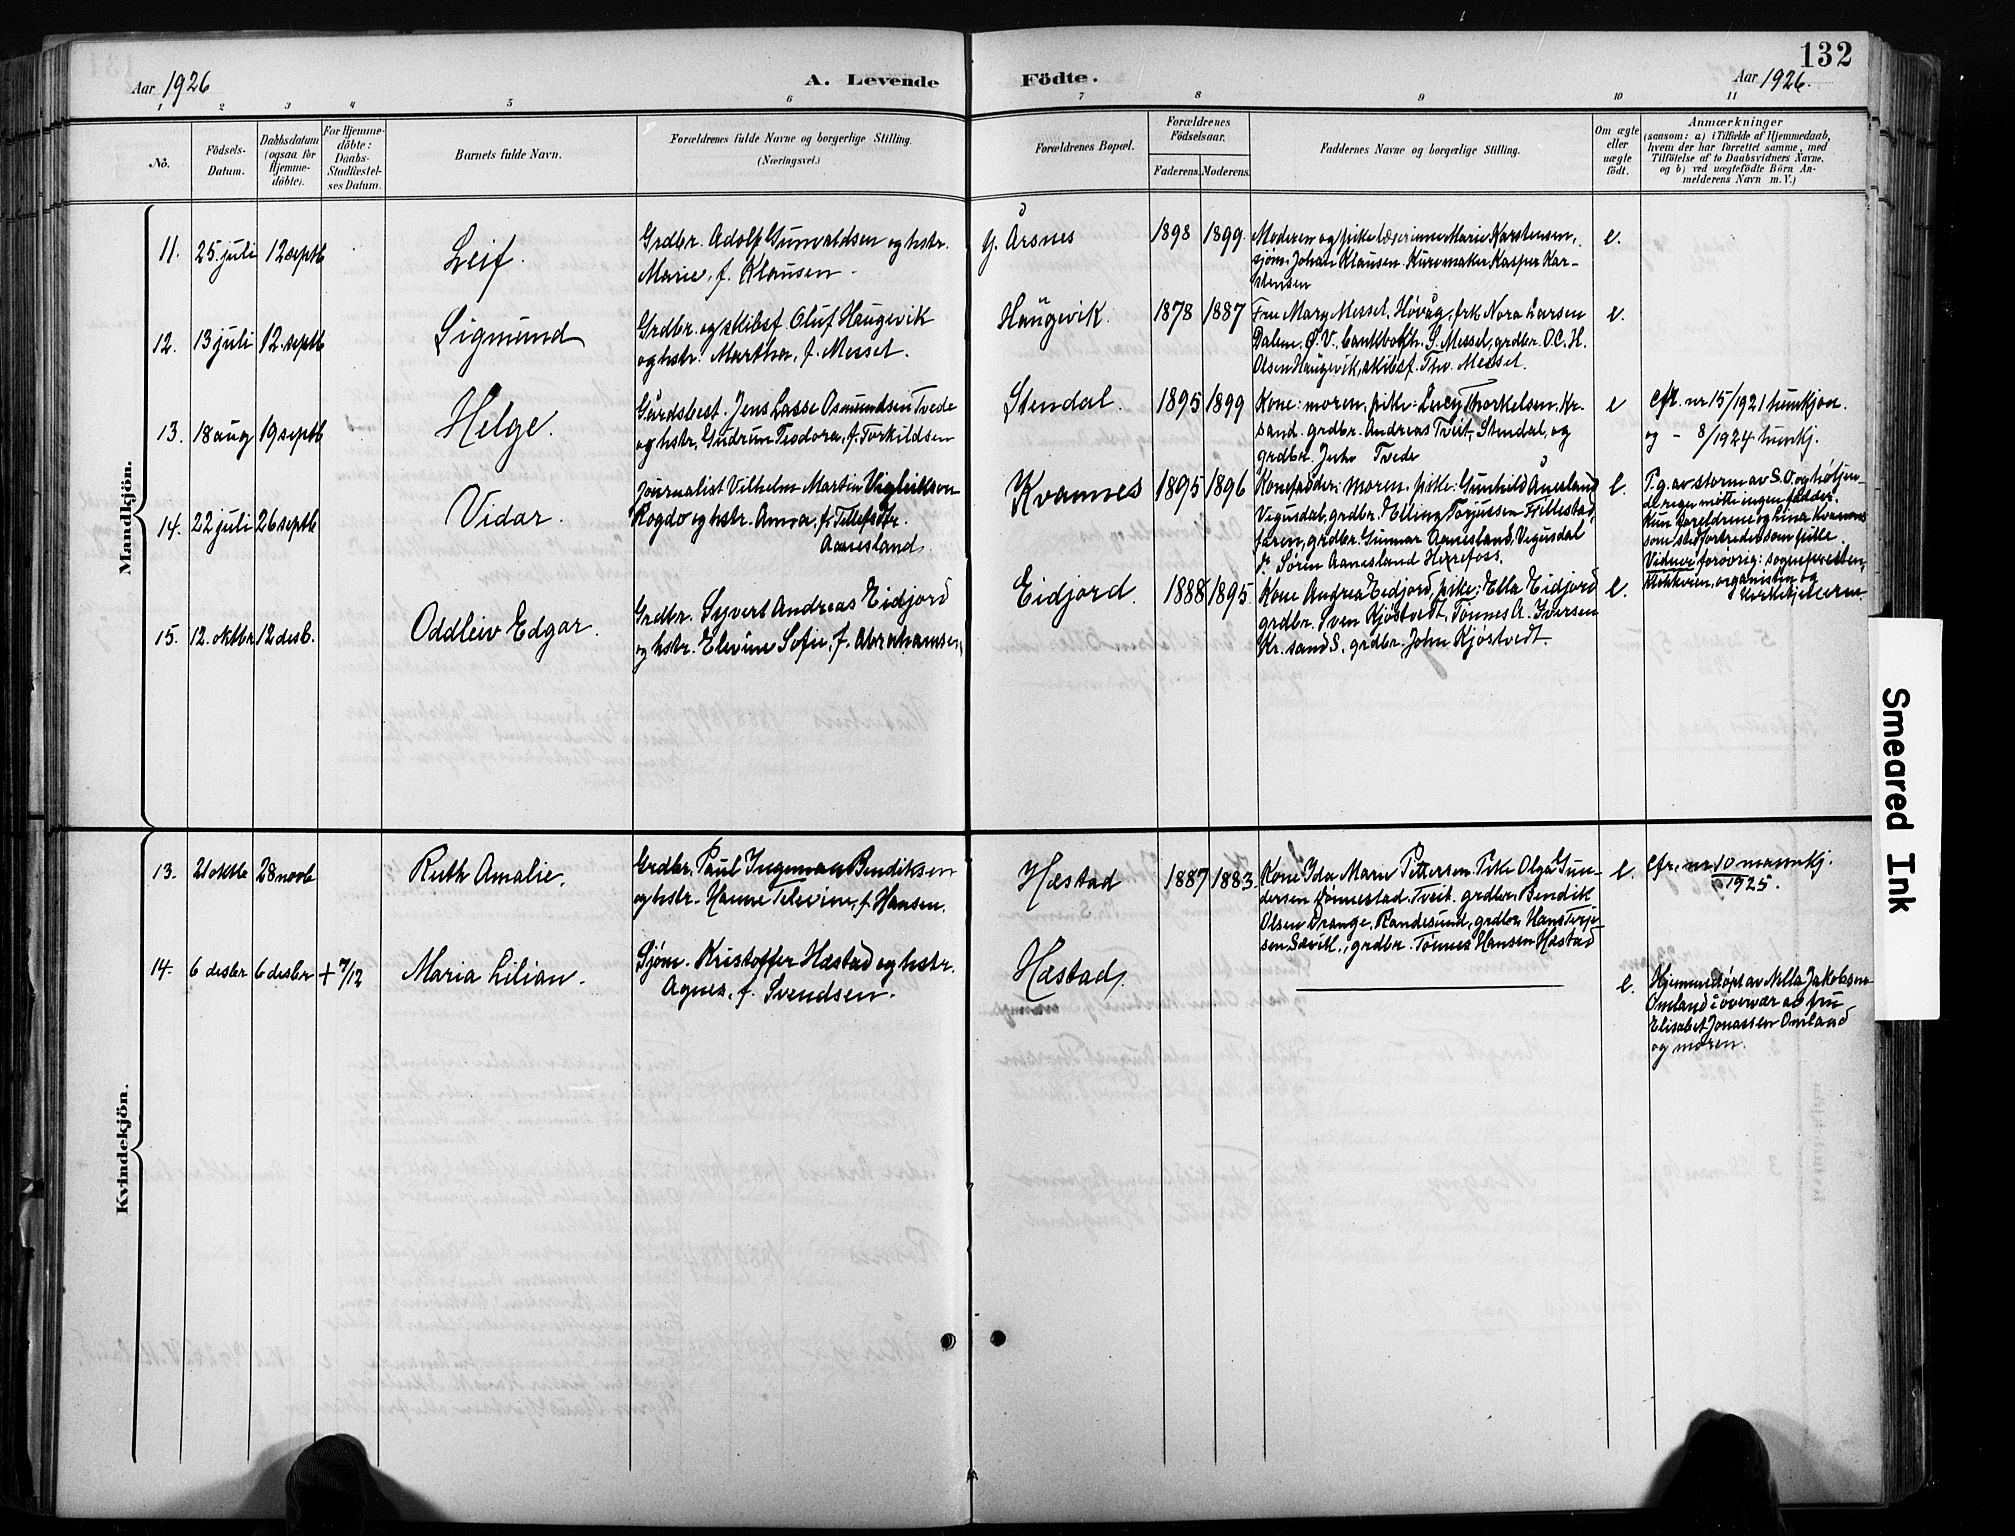 132
Aar 1926
A. Levende Födte.
Aar 1926.
1 2 3 4 5 6 7 8 9 10 11
No.
Födsels-
Datum.
Daabsdatum
(ogsaa for
Hjemme-
döbte).
For Hjemme-
döbte:
Daabs-
Stadfæstel-
ses Datum.
Barnets fulde Navn.
Forældrenes fulde Navne og borgerlige Stilling.
(Næringsvei.)
Forældrenes Bopæl.
Forældrenes
Födselsaar.
Faderens. Moderens.
Faddernes Navne og borgerlige Stilling.
Om ægte
eller
uægte
födt.
Anmærkninger
(saasom: a) i Tilfælde af Hjemmedaab,
hvem der har forrettet samme, med
Tilföielse af to Daabsvidners Navne.
og b) ved uægtefödte Börn An-
melderens Navn m. V.)
Mandkjön.
11. 25 juli 12 septb Leif.
Grdbr. Adolf Gunvaldsen og hstr.
Marie, f. Klausen.
y. Årsnes 1898 1899.
Moderen og pike Marie Karstensen,
sjøm. Johan Klausen. Kasper Kar-
stensen
e.
12. 13 juli 12. septb Sigmund
Grdbr. og skibsf. Oluf Haugevik
og hstr. Martha, f. Messel.
Haugevik. 1878 1887
Fru Mary Messel, Høvåg, frk Nora Larsen
Dalene, Ø. V. S. Messel, grdbr. O. C. H.
Olsen Haugevik, skibsf. Thv. Messel.
e.
13. 18 aug 19 septb Helge.
Gårdsbest. Jens Lasse Osmundsen Tvede
og hstr. Gudrun Teodora, f. Torkildsen
Stendal. 1895 1899
Kone: moren, pike: Lucy Thorkelsen, Kr-
sand. grdbr. Andreas Tveit, Stendal, og
grdbr. Tvede
e
cfr. nr 15/1921 hunkjøn
og - 8/1924 hunkj.
14. 22 juli 26 septb Vidar.
Journalist Vilhelm Martin Vigleiksen
Rogdo og hstr. Anna, f. Tellefsdtr.
Aanesland.
Kvannes 1895 1896
Konefadder: moren. pike: Gunhild Ånesland
Vegusdal, grdbr. Elling Torjussen
grdbr. Gunnar Aanesland, Vegusdal
Søren Aanesland Herefoss.
e.
P.g. av storm av S.O. og høljen-
de regn møtte ingen faddere.
Kun foreldrene og Lina Kvannes
som stedfortreder som pike.
Vidner forøvrig: sogneprsten,
klokkeren, organisten og
kirketjeneren.
15. 12. oktbr 12 desb. Oddleiv Edgar.
Grdbr. Syvert Andreas Eidjord
og hstr. Elevine Sofie, f. Abrahamsen,
Eidjord. 1888 1895
Kone Andrea Eidjord, pike: Ella Eidjord
grdbr. Sven Kjøstvedt, Tønnes A. Iversen
Kr. sand S. grdbr. John Kjøstvedt.
e.
Kvindekjön.
13. 21 oktb 28 novb Ruth Amalie.
Grdbr. Paul Ingeman Bendiksen
og hstr. Hanne Televine, f. Hansen.
Hæstad 1887 1883.
Kone Ida Marie Pettersen. Pike Olga Gun-
dersen Rønnestad, Tveit. grdbr. Bendik
Olsen Drange, Randesund, grdbr. Hans Terje-
sen Sævik., grdbr. Tønnes Hansen Hæstad
e.
cfr. nr 10 mannkj.
1925.
14. 6 desbr 6 desbr + 7/12 Maria Lilian.
Sjøm. Kristoffer Hæstad og hstr.
Agnes, f. Svendsen.
Hæstad.
e.
Hjemmedøpt av Nella Jakobsen
Omland i overvær av fru
Elisabet Jonassen Omland
og moren.
Smeared Ink